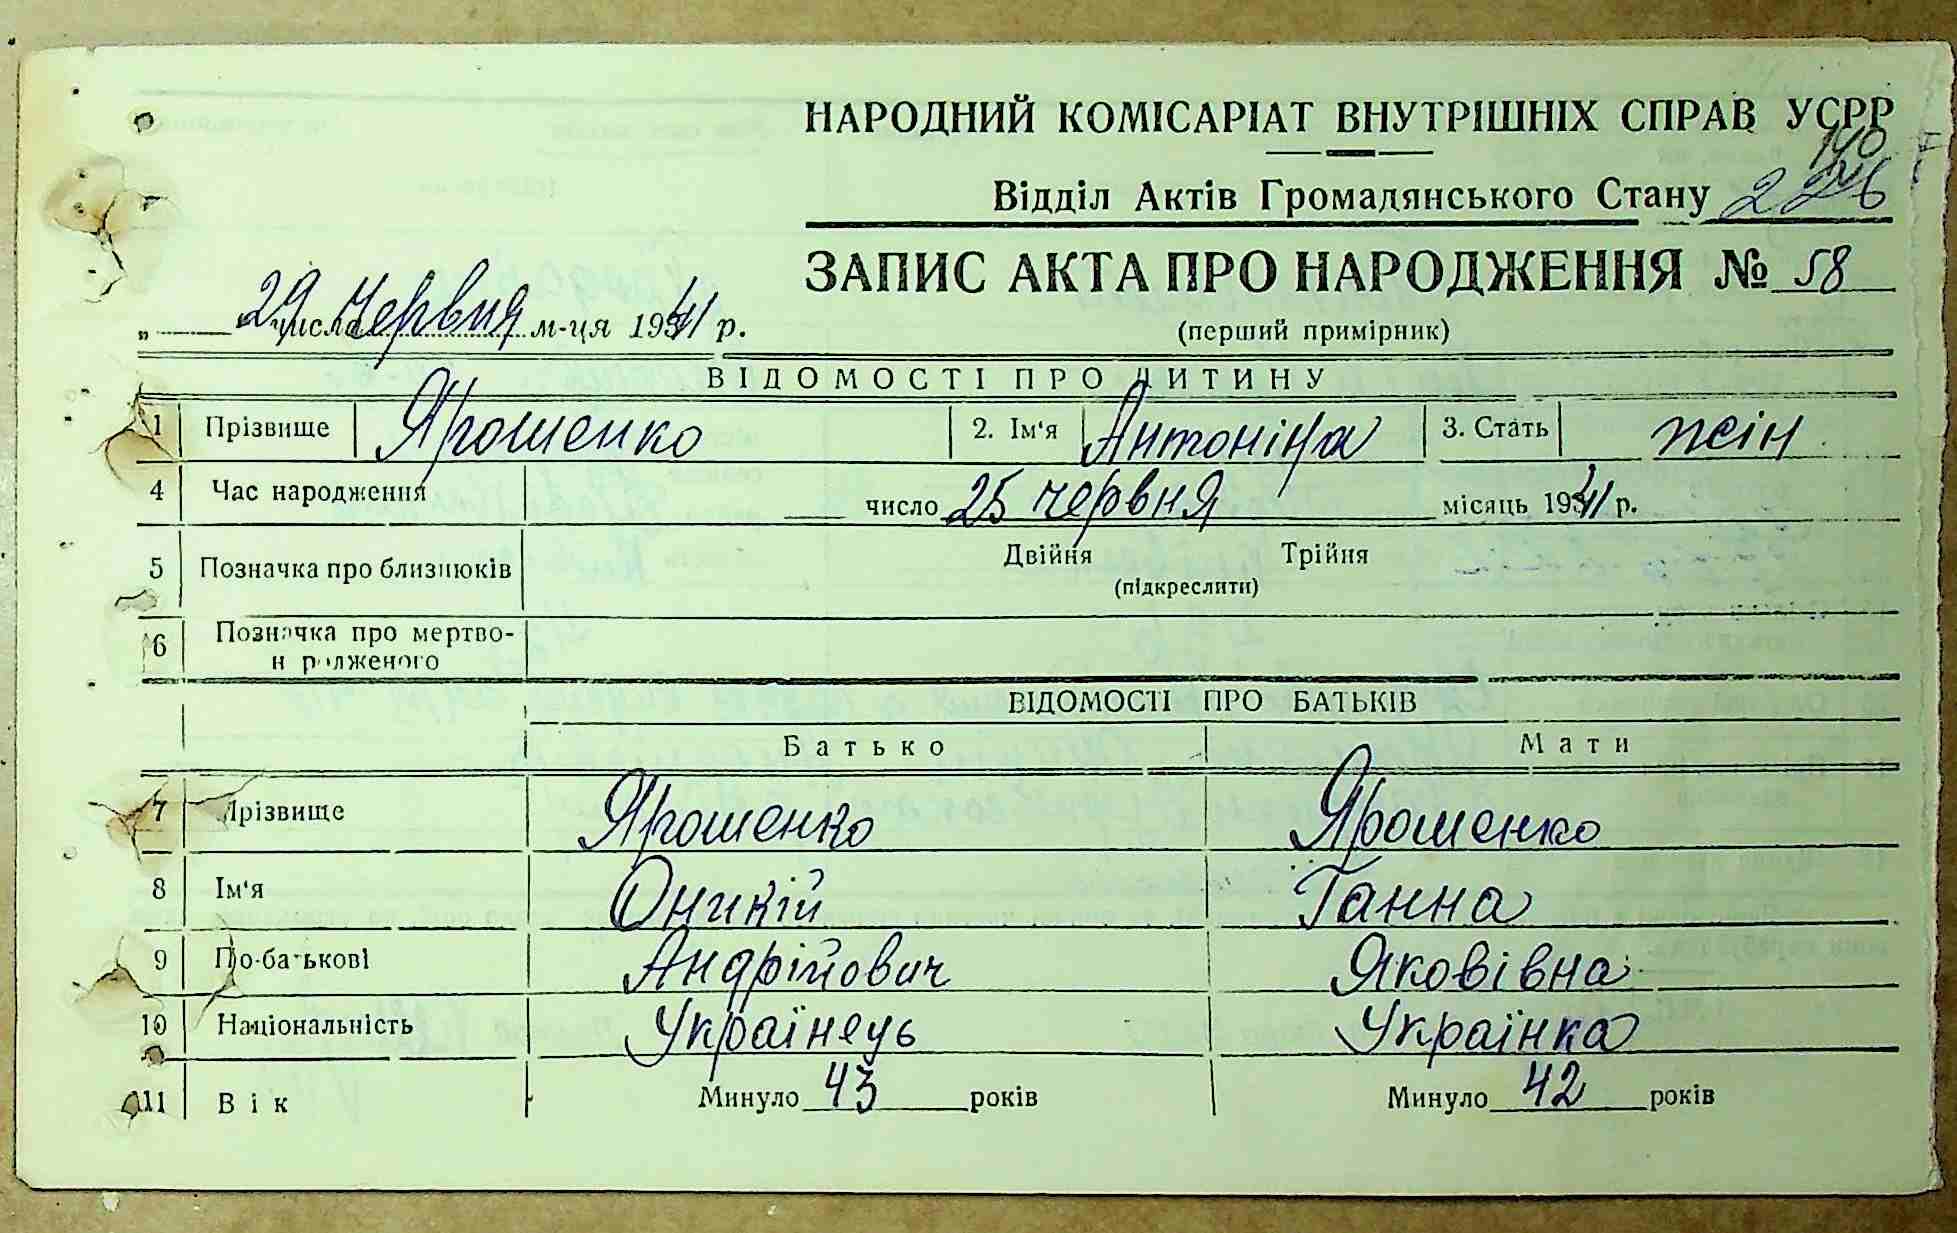 НАРОДНИЙ КОМІСАРІАТ ВНУТРІШНІХ СПРАВ УСРР
140
Відділ Актів Громадянського Стану 226
ЗАПИС АКТА ПРО НАРОДЖЕННЯ № 58
„ 29 " числа Червня м-ця 1941 р.
(перший примірник)
ВІДОМОСТІ ПРО ДИТИНУ
1 Прізвище Ярошенко 2. Ім'я Антоніна 3. Стать жін
4 Час народження число 25 червня місяць 1941 р.
5 Позначка про близнюків Двійня Трійня
(підкреслити)
6 Позначка про мертво-
н родженого
ВІДОМОСТІ ПРО БАТЬКІВ
Батько Мати
7 Прізвище Ярошенко Ярошенко
8 Ім'я Оникій Ганна
9 По-батькові Андрійович Яковівна
10 Національність Українець Українка
11 Вік Минуло 43 років Минуло 42 років